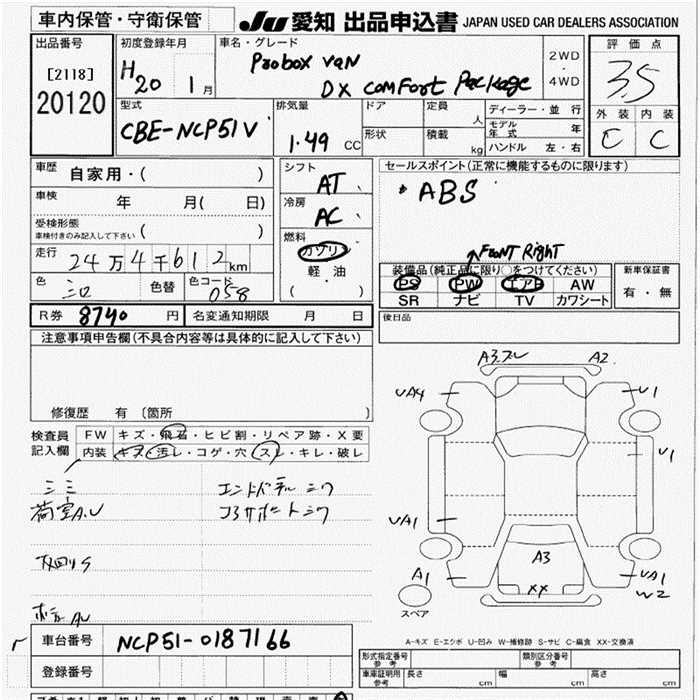 車内保管・守衛保管 JU 愛知 出品申込書 JAPAN USED CAR DEALERS ASSOCIATION
出品番号 初度登録年月 車名・グレード 評価点
[2118] H20 1月 Probox van 2WD
・
20120 DX comfort Package 4WD 3.5
型式 排気量 ドア 定員 ディーラー・並行 外装 内装
CBE-NCP51V 1.49 CC 人 モデル年式 年 C C
形状 積載 kg ハンドル 左・右
車歴 自家用・( ) シフト AT セールスポイント(正常に機能するものに限ります)
車検 年 月( 日) 冷房 AC ABS
受検形態
車検付きのみ記入して下さい ( ) 燃料
走行 24万4千612km ガソリン Front Right
軽油 装備品(純正品に限り○をつけてください) 新車保証書
色 シロ 色替 色コード 058 ( ・ ) PS PW エアB AW 有・無
SR ナビ TV カワシート
R券 8740 円 名変通知期限 月 日 後日品
注意事項申告欄(不具合内容等は具体的に記入して下さい)
修復歴 有 [箇所 ]
検査員 FW キズ・飛石・ヒビ割・リペア跡・X要
記入欄 内装 キズ・汚レ・コゲ・穴・スレ・キレ・破レ
A3.ズレ A2.
UA4 U1
U1
UA1
A3
A1 XX UA1
W2
スペア
シミ エンドパネル シワ
荷室A.U コアサポート シワ
下回りS
A.U
車台番号 NCP51-0187166
登録番号
A-キズ E-エクボ U-凹み W-補修跡 S-サビ C-腐食 XX-交換済
形式指定番号 参考 類別区分番号 参考
車庫証明用 参考 長さ cm 幅 cm 高さ cm